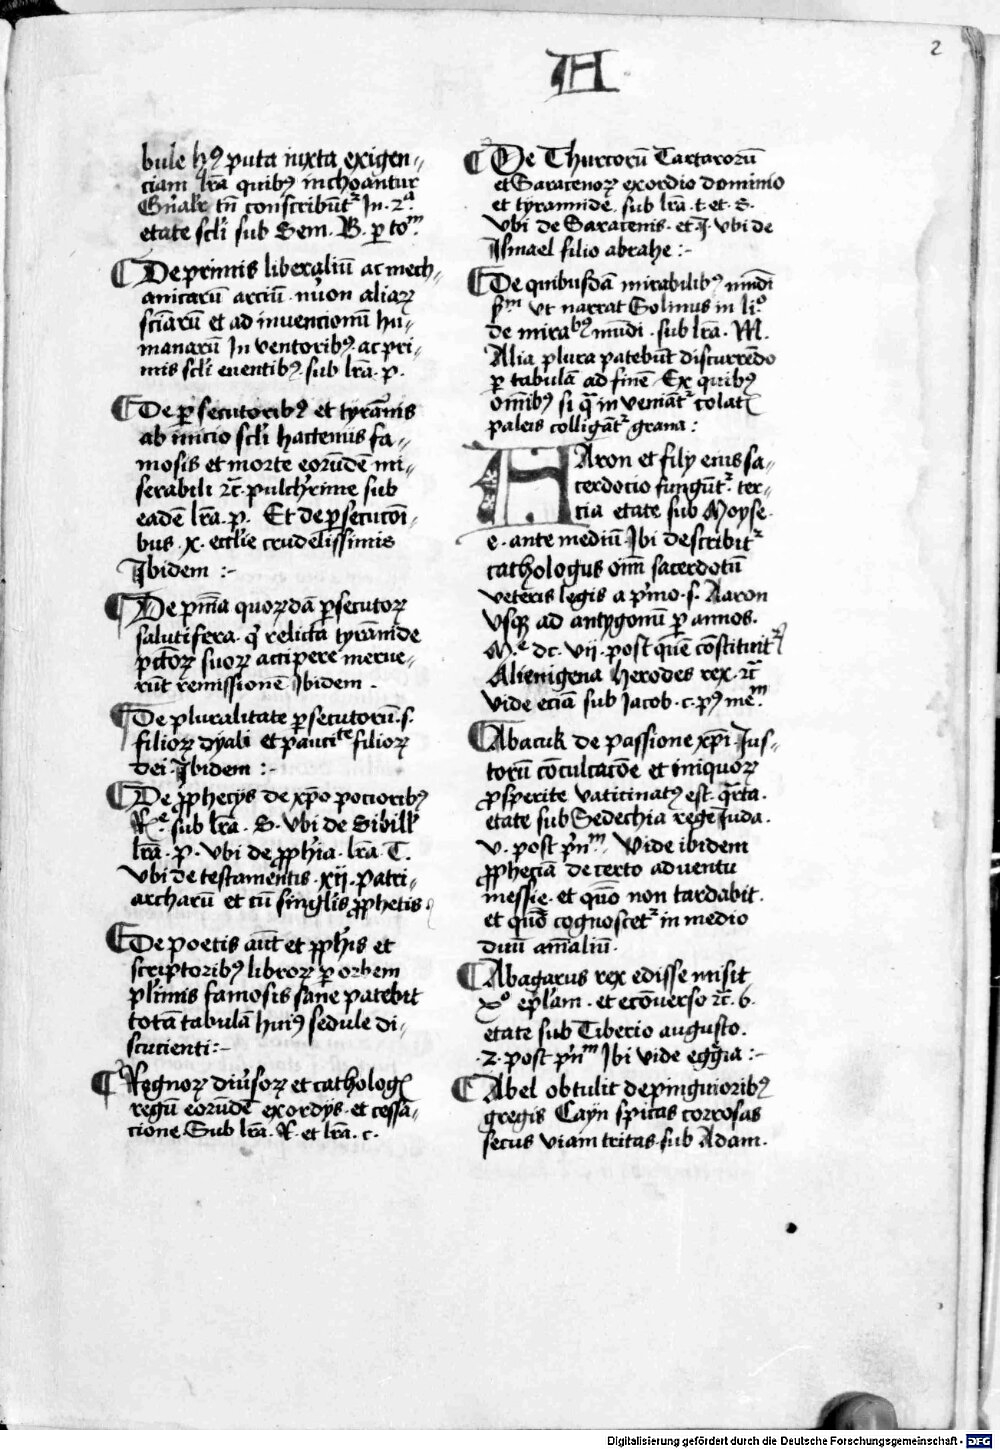 2
A
bule hꝰ puta iuxta exigen-
ciam lr̄a quibꝰ inchoantur
Gn̄alr̄ tn̄ conscribūt᷑ In .2ᵃ.
etate scl̄i sub Sem. B. ꝑ toᵐ.
¶ De primis liberaliū ac mech-
anicarū arciū . nūon aliaꝝ
sciārū et ad invencionū hu-
manarū Inventoribꝰ. ac pri-
mis scl̄i eventibꝰ. sub lr̄a. p.
¶ De ꝑsecutoribꝰ et tyrānis
ab inicio scl̄i hactenus fa-
mosis et morte eorūdē mi-
serabili ⁊c̄. pulchrime sub
eadē lr̄a. p. Et de ꝑsecucōi-
bus .x. eccl̄ie crudelissimis
Ibidem :-
¶ De pn̄ia quorūdā ꝑsecutoꝝ
salutifera. qͥ relicta tyrānide
pctōꝝ suoꝝ accipere merue-
rūt remissionē Ibidem .
¶ De pluralitate ꝑsecutorū .s.
filioꝝ dyali et paucitᵗᵉ filioꝝ
dei . Ibidem :-
¶ De ꝓphecijs de xp̄o pocioribꝰ
Rᵉ. sub lr̄a. S. vbi de Sibill'
lr̄a. p. vbi de ꝓph̄ia. lr̄a. T.
vbi de testamentis .xij. patri-
archarū et cū singl̄is ꝓphetis.
¶ De poetis aūt et ꝓph̄is et
scriptoribꝰ libroꝝ ꝑ orbem
pl̄imis famosis sane patebit
totā tabulā huiꝰ sedule di-
scucienti :-
¶ Regnoꝝ diūsoꝝ et catholog
regū eorūdē exordijs . et cessa-
cione. Sub lr̄a. R. et lr̄a. c.
¶ De Thurcorū Tartarorū
et Saracenoꝝ exordio dominio
et tyrannide. sub lr̄a. t. et. S.
vbi de Saracenis. et. J. vbi de
Ismael filio abrahe :-
¶ De quibusdā mirabilibꝰ mūdi
pᵐ vt narrat Solinus in liᵒ.
de mirabꝰ mūdi . sub lr̄a. M.
Alia plura patebūt discurrēdo
ꝑ tabulā ad finē. Ex quibꝰ
om̄ibꝰ si q̄ inveniāt᷑ colat
paleis colligāt᷑ grana :
AAron et filij eius sa-
cerdocio fungūt᷑. ter-
cia etate sub Moyse.
e. ante mediū. Ibi describit᷑
cathologus om̄i sacerdotū
veteris legis a pͥmo .s. Aaron
vsqꝫ ad antygonū ꝑ annos.
Mᵉ. dc. vij. post quē cōstituit᷑
Alienigena herodes rex. ⁊c̄
vide eciā sub Jacob . c. pꝰ meᵐ.
¶ Abacuk de passione xp̄i. Jus-
torū cōculcacōe et iniquoꝝ
ꝓsperite vaticinatꝰ est. qͣrta.
etate sub Sedechia rege Iuda.
v. post pn̄ᵐ. Vide ibidem
ꝓpheciā de certo adventu
messie. et quō non tardabit.
et quō cognoscet᷑ in medio
duū am̄aliū.
¶ Abagarus rex edisse misit
xᵒ epl̄am. et ecōverso ⁊c̄. 6.
etate sub Tiberio augusto.
.2. post pn̄ᵐ Ibi vide eggͥia :-
¶ Abel obtulit de pinguioribꝰ
gregis Cayn spicas corrosas
secus viam tritas. sub Adam.
Digitalisierung gefördert durch die Deutsche Forschungsgemeinschaft - DFG